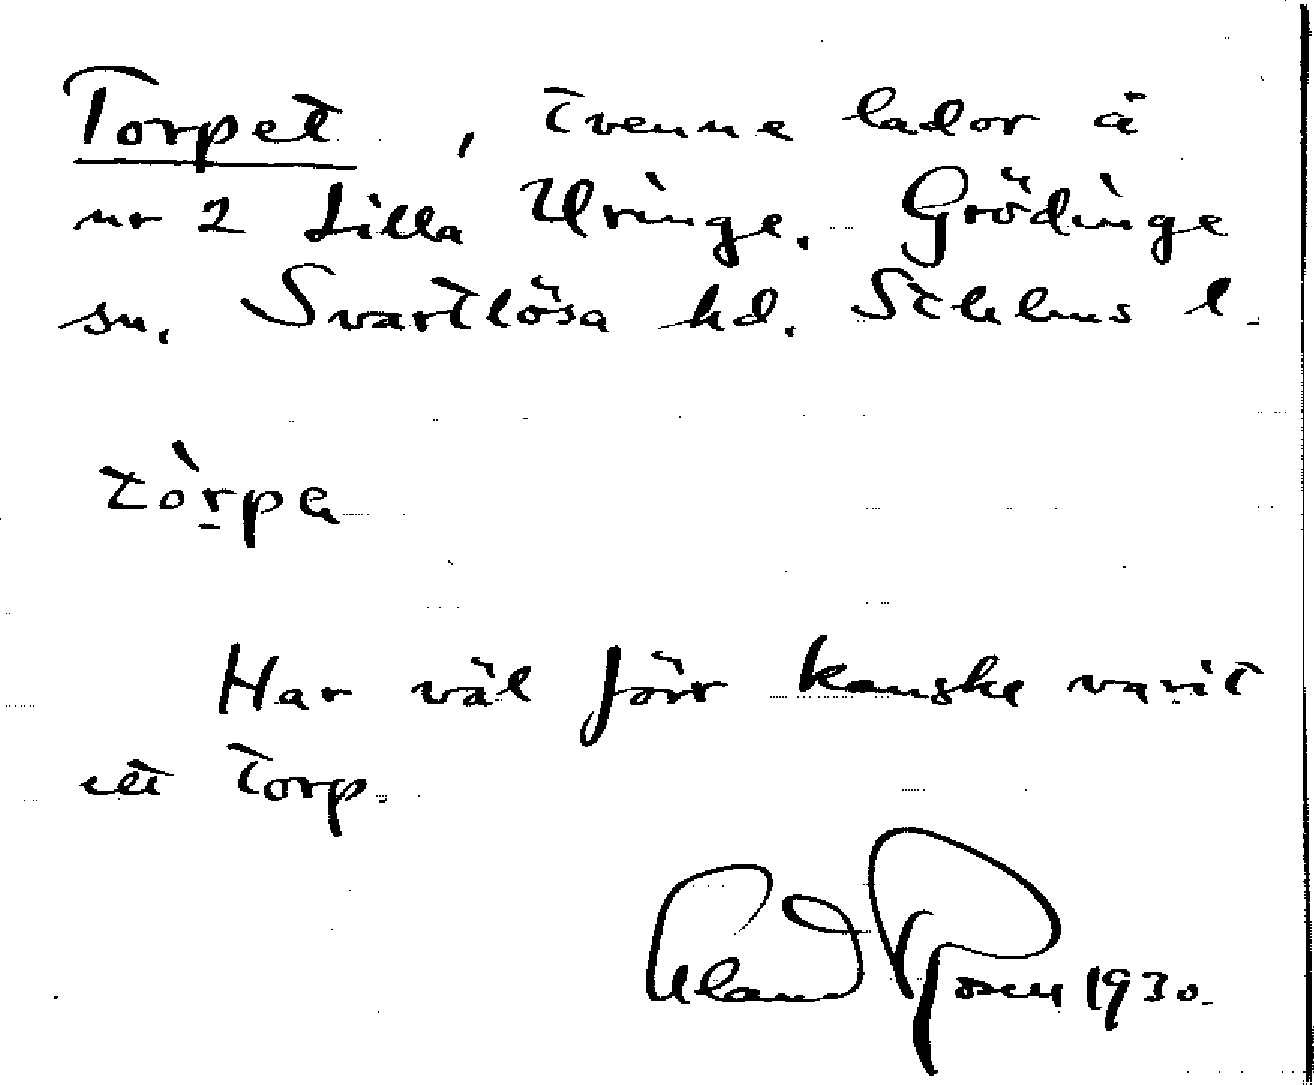 Torpet, tvenne lador å
nr 2 Lilla Uringe. Grödinge
sn. Svartlösa hd. Sthlms l.
tòrpa
Har väl förr kanske varit
ett torp.
Rosen 1930.